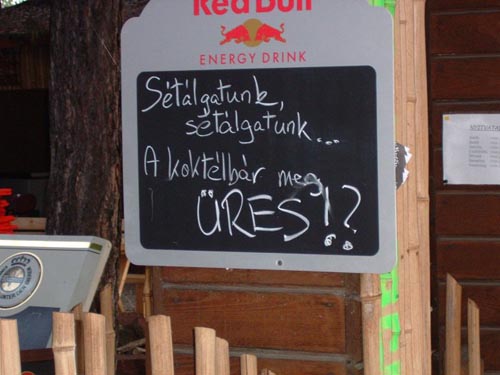 Red Bull
ENERGY DRINK
Sétálgatunk,
sétálgatunk...
A koktélbár meg
ÜRES!?
NYITVATAR